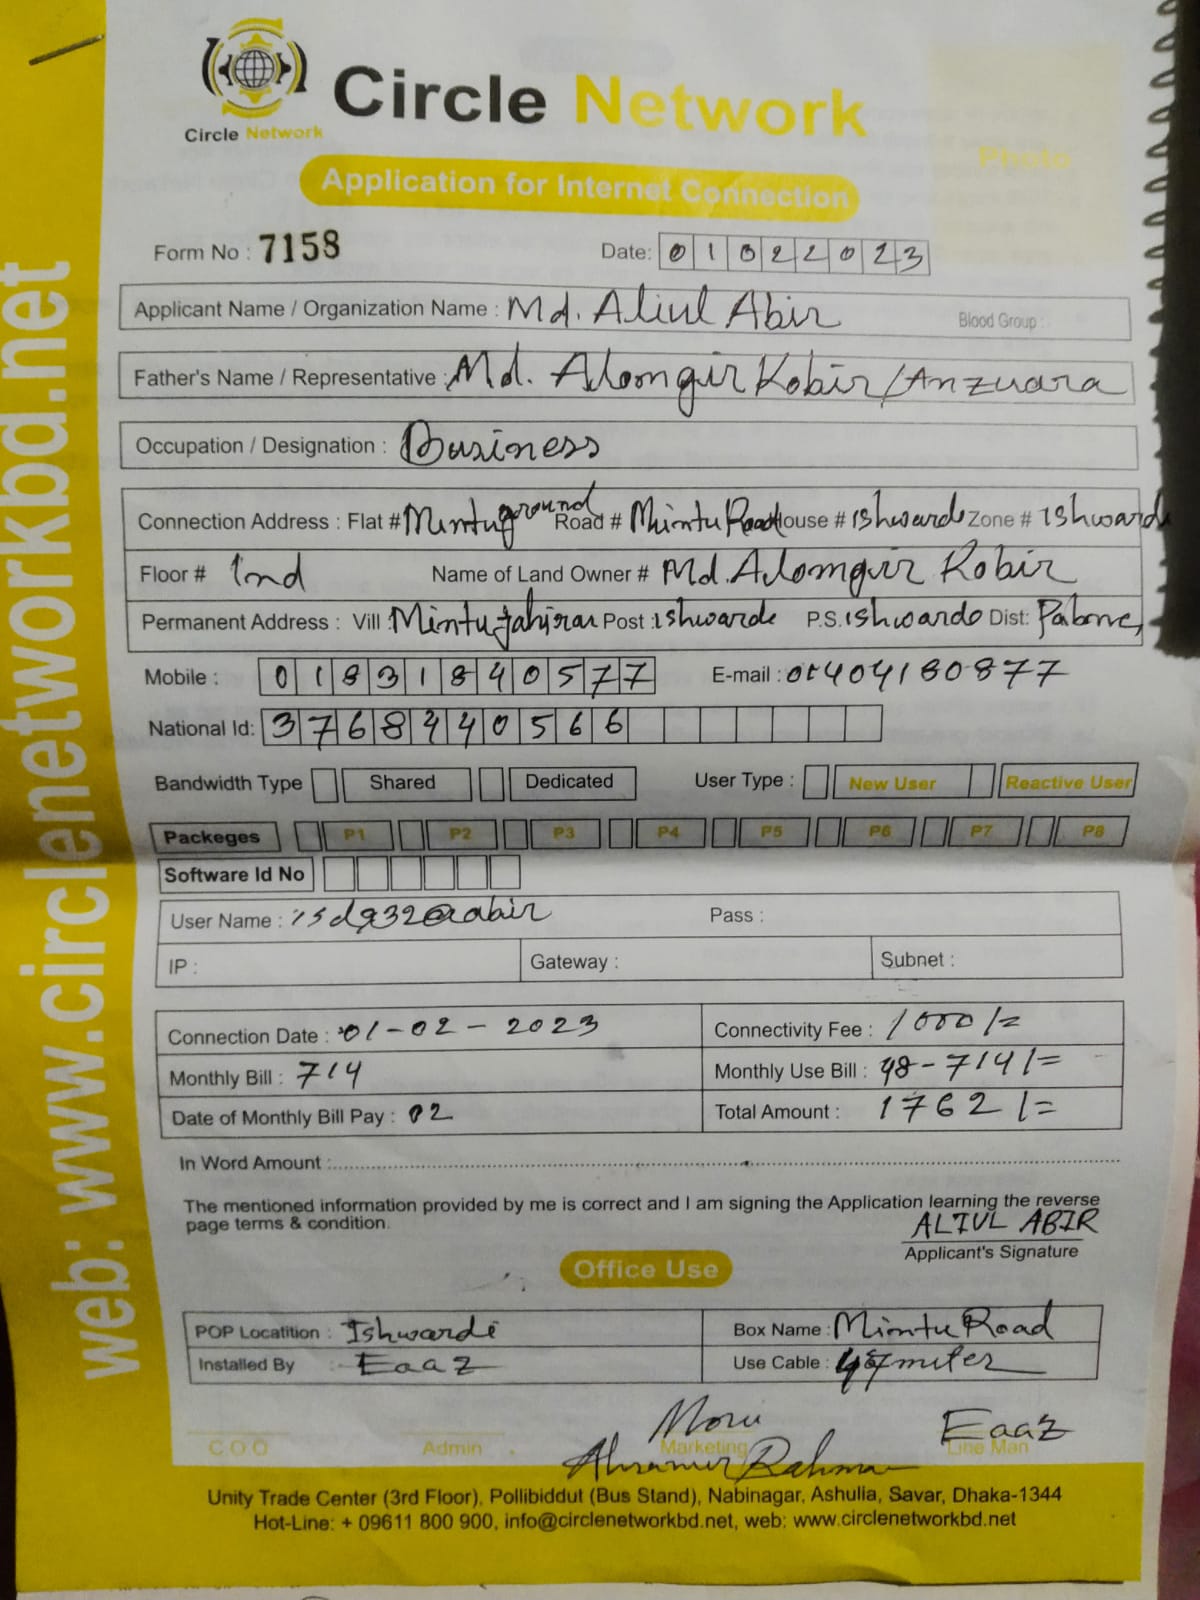 Circle Network
Circle Network
Photo
Application for Internet Connection
Form No : 7158 Date: 01022023
Applicant Name / Organization Name : Md. Aliul Abir Blood Group :
Father's Name / Representative : Md. Alomgir Kobir/Anzuara
Occupation / Designation : Business
Connection Address : Flat # Mintu ground Road # Mintu Road House # ishwardi Zone # Ishwardi
Floor # 1nd Name of Land Owner # Md. Alomgir Kobir
Permanent Address : Vill : Mintu Post : ishwarde P.S. ishwardo Dist: Pabna,
Mobile : 01831840577 E-mail : 01404180877
National Id: 3768440566
Bandwidth Type Shared Dedicated User Type : New User Reactive User
Packeges P1 P2 P3 P4 P5 P6 P7 P8
Software Id No
User Name : isd932@abir Pass :
IP : Gateway : Subnet :
Connection Date : 01-02-2023 Connectivity Fee : 1000/=
Monthly Bill : 714 Monthly Use Bill : 48-714/=
Date of Monthly Bill Pay : 02 Total Amount : 1762/=
In Word Amount :
The mentioned information provided by me is correct and I am signing the Application learning the reverse
page terms & condition.
ALIUL ABIR
Applicant's Signature
Office Use
POP Locatition : Ishwardi Box Name : Mintu Road
Installed By : Eaaz Use Cable : meter
Eaaz
C O O Admin Marketing Line Man
Rahman
Unity Trade Center (3rd Floor), Pollibiddut (Bus Stand), Nabinagar, Ashulia, Savar, Dhaka-1344
Hot-Line: + 09611 800 900, info@circlenetworkbd.net, web: www.circlenetworkbd.net
web: www.circlenetworkbd.net